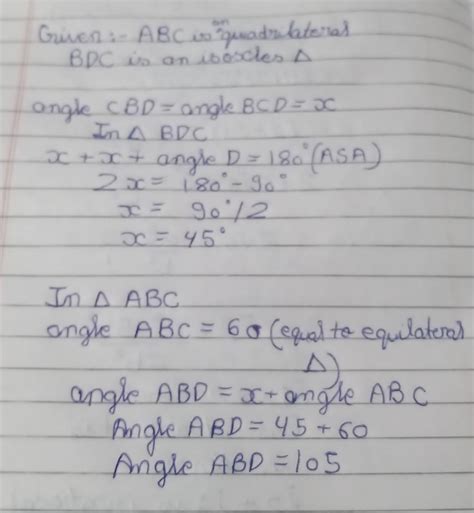 Given :- ABC is an quadrilateral
BDC is an isoscles Δ
angle CBD = angle BCD = x
In Δ BDC
x + x + angle D = 180° (ASA)
2x = 180° - 90°
x = 90°/2
x = 45°
In Δ ABC
angle ABC = 60 (equal to equilateral
Δ)
angle ABD = x + angle ABC
Angle ABD = 45 + 60
Angle ABD = 105